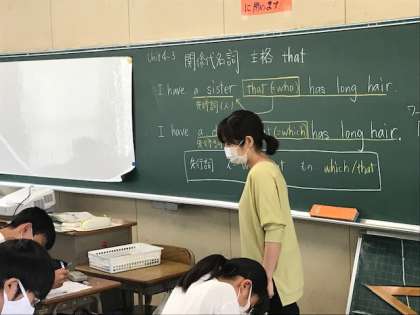 に問います
Unit 4-3 関係代名詞 主格 that
I have a sister that(=who) has long hair.
先行詞(人)
I have a which) has long hair.
先行詞
先行詞 which/that
ワー